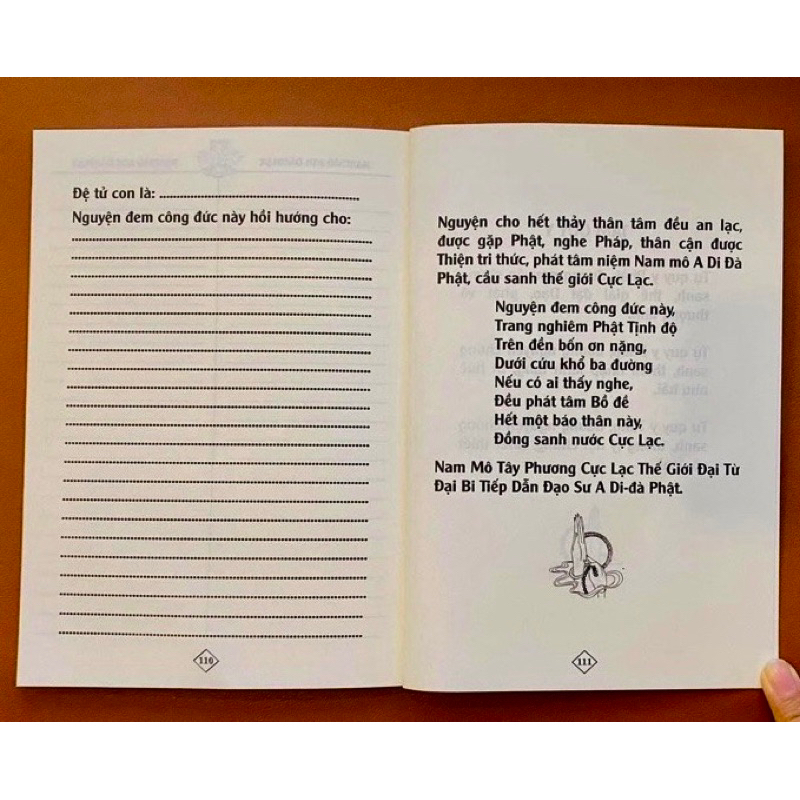 Đệ tử con là: ........................................
Nguyện đem công đức này hồi hướng cho:
110
Nguyện cho hết thảy thân tâm đều an lạc,
được gặp Phật, nghe Pháp, thân cận được
Thiện tri thức, phát tâm niệm Nam mô A Di Đà
Phật, cầu sanh thế giới Cực Lạc.
Nguyện đem công đức này,
Trang nghiêm Phật Tịnh độ
Trên đền bốn ơn nặng,
Dưới cứu khổ ba đường
Nếu có ai thấy nghe,
Đều phát tâm Bồ đề
Hết một báo thân này,
Đồng sanh nước Cực Lạc.
Nam Mô Tây Phương Cực Lạc Thế Giới Đại Từ
Đại Bi Tiếp Dẫn Đạo Sư A Di-đà Phật.
111